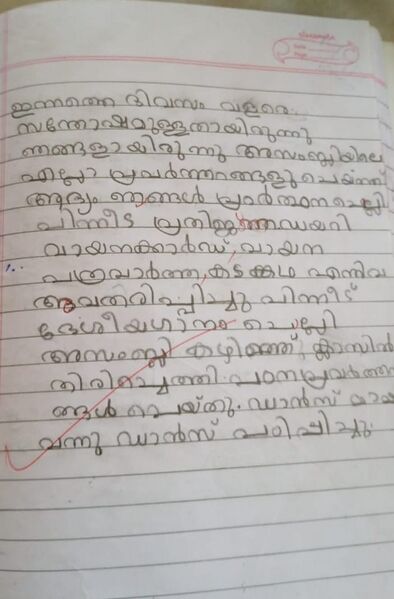 ഇന്നത്തെ ദിവസം വളരെ
സന്തോഷമുള്ളതായിരുന്നു
ഞങ്ങളായിരുന്നു അസംബ്ലിയിലെ
എല്ലാ പ്രവർത്തനങ്ങളുംചെയ്തത്
ആദ്യം ഞങ്ങൾ പ്രാർത്ഥനചൊല്ലി
പിന്നീട് പ്രതിജ്ഞ
വായനക്കാർഡ്, വായന
പത്രവാർത്ത, കടങ്കഥ എന്നിവ
അവതരിപ്പിച്ചു പിന്നീട്
ദേശീയഗാനം ചൊല്ലി
അസംബ്ലി കഴിഞ്ഞ് ക്ലാസിൽ
തിരിച്ചെത്തി. പഠനപ്രവർത്തന
ങ്ങൾ ചെയ്തു. ഡാൻസ്
വന്നു ഡാൻസ് പഠിപ്പിച്ചു.